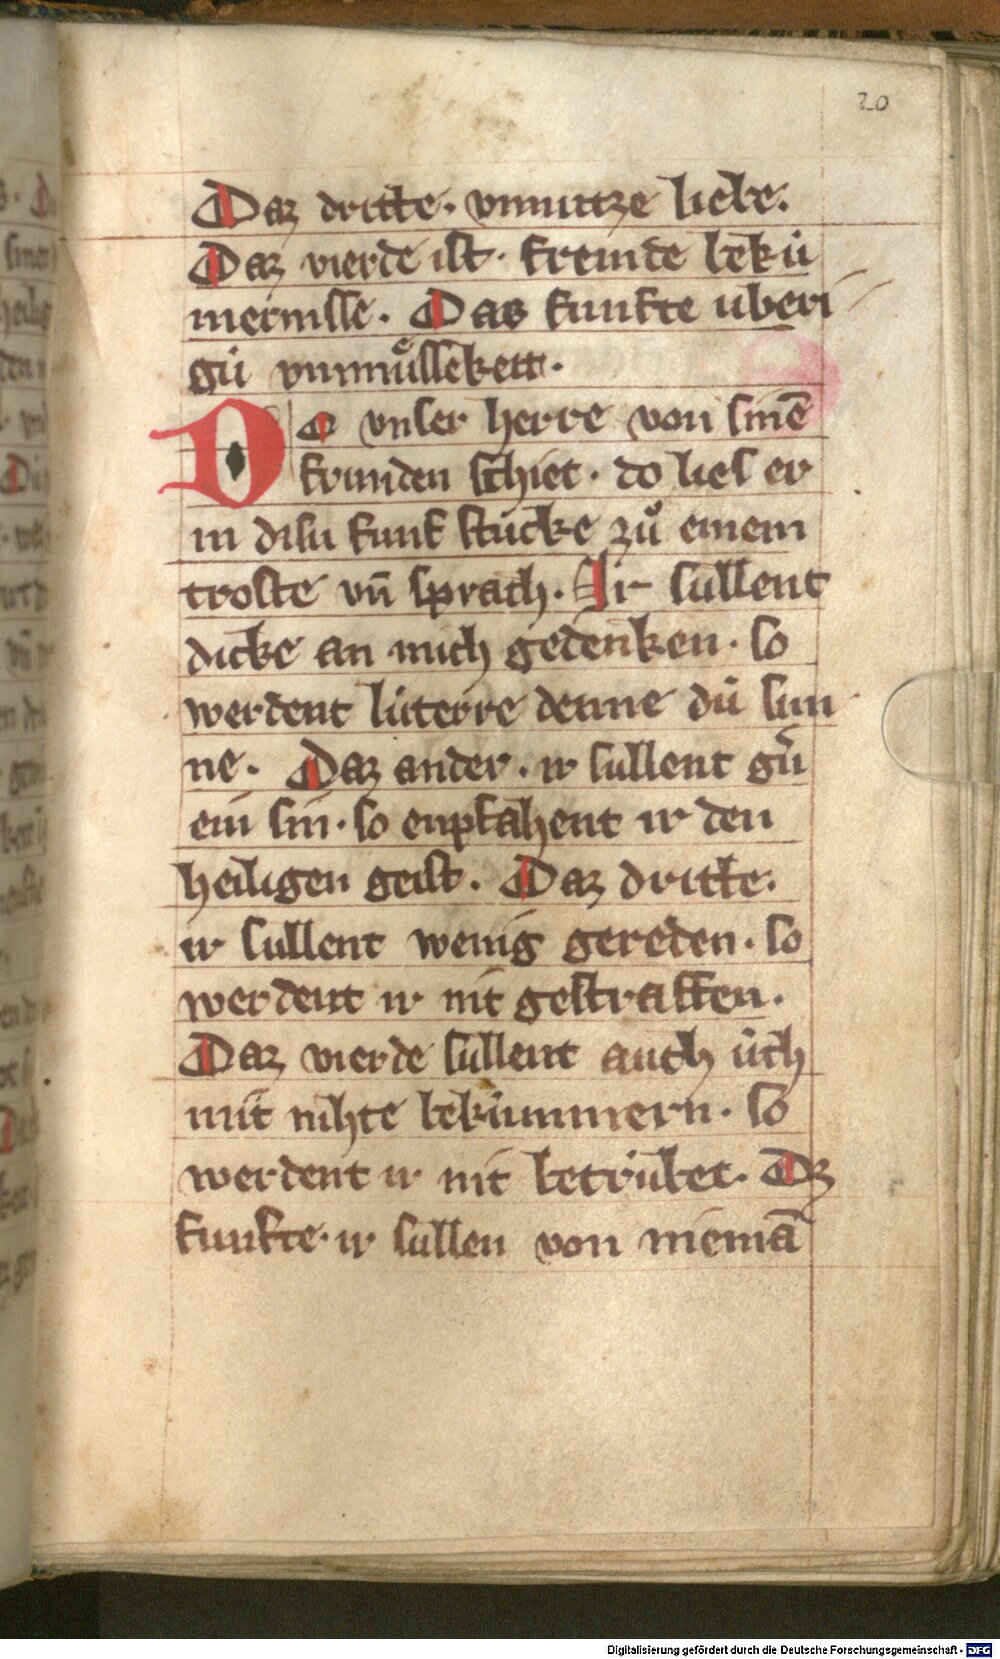 20
Daz dritte. vnnutze liebe.
Daz vierde ist. fremde bekú
mernisse. Das funfte uberi
gú vnmuͤssekeit.
Do vnser herre von sinē
frunden schiet. do lies er
in disu funf stúcke zuͦ einem
troste vn̄ sprach. Ir sullent
dicke an mich gedenken. so
werdent lúterre denne dú sun
ne. Daz ander. ir sullent guͦt
ein sin. so enpfahent ir den
heiligen geist. Daz dritte.
ir sullent wenig gereden. so
werdent ir nit gestraffen.
Daz vierde sullent auch úch
mit nihte bekúmmern. so
werdent ir nit betrúbet. Dz
funfte. ir sullen von niemā
Digitalisierung gefördert durch die Deutsche Forschungsgemeinschaft - DFG